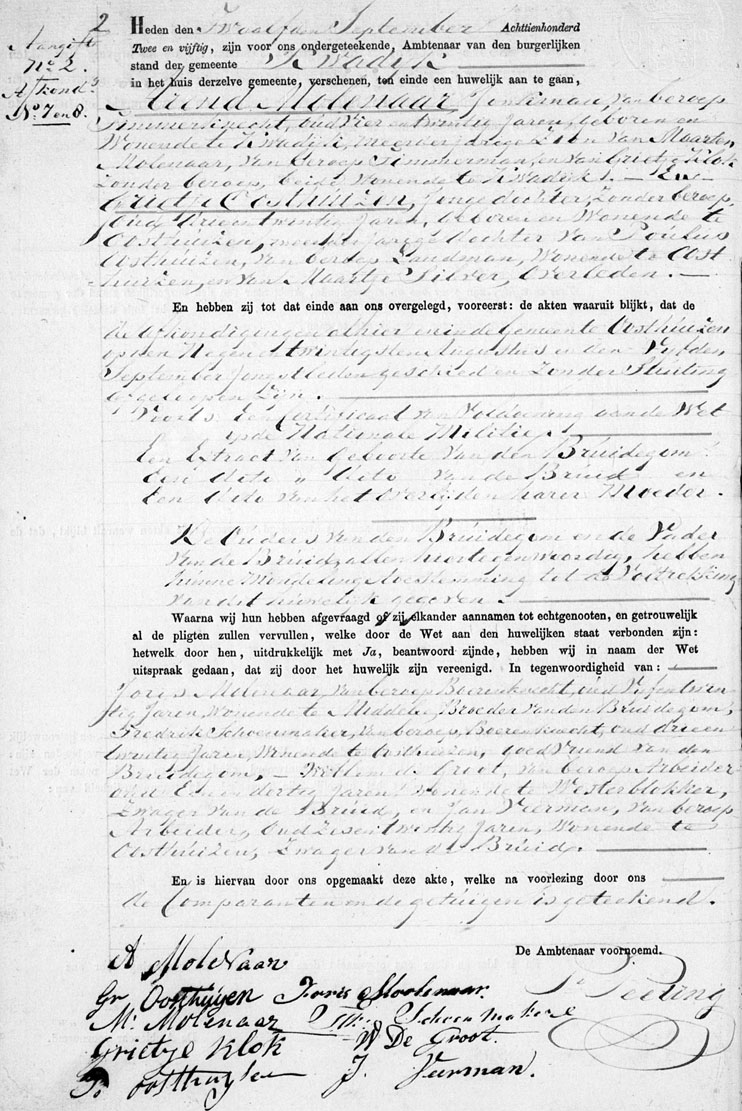 2
Aangifte
No 2.
Afkond.
No. 7 en 8.
Heden den Twaalfden September Achttienhonderd
Twee en vijftig, zijn voor ons ondergeteekende, Ambtenaar van den burgerlijken
stand der gemeente Kwadijk
in het huis derzelve gemeente, verschenen, ten einde een huwelijk aan te gaan,
Arend Molenaar, Jonkman, van beroep
Timmerknecht, oud Vier en twintig Jaren, geboren en
Wonende te Kwadijk, meerderjarige Zoon van Maarten
Molenaar, van beroep Timmerman, en van Grietje Klok
zonder beroep, beide Wonende te Kwadijk. — En
Grietje Oosthuizen, Jonge dochter, zonder beroep,
Oud Drie en twintig Jaren, Geboren en Wonende te
Oosthuizen, meerderjarige dochter van Poulus
Oosthuizen, van beroep Landman, Wonende te Oost-
huizen, en van Maartje Zilver, Overleden. —
En hebben zij tot dat einde aan ons overgelegd, vooreerst: de akten waaruit blijkt, dat de
de afkondigingen alhier en in de Gemeente Oosthuizen
op den Negen en twintigsten Augustus en den Vijfden
September Jongstleden geschied en zonder Stuiting
afgeloopen Zijn.
Voorts: Een Certificaat van Voldoening aan de Wet
op de Nationale Militie.
Een Extract van Geboorte van den Bruidegom.
Een dito " dito van de Bruid en
Een dito van het Overlijden harer Moeder.
De Ouders van den Bruidegom en de Vader
van de Bruid, allen hier tegenwoordig, hebben
hunne Mondeling toestemming tot de Voltrekking
van dit huwelijk gegeven.
Waarna wij hun hebben afgevraagd of zij elkander aannamen tot echtgenooten, en getrouwelijk
al de pligten zullen vervullen, welke door de Wet aan den huwelijken staat verbonden zijn:
hetwelk door hen, uitdrukkelijk met Ja, beantwoord zijnde, hebben wij in naam der Wet
uitspraak gedaan, dat zij door het huwelijk zijn vereenigd. In tegenwoordigheid van:
Joris Molenaar, van beroep Boerenknecht, oud Vijf en twin-
tig Jaren, Wonende te Middelie, Broeder van den Bruidegom,
Fredrik Schoenmaker, van beroep, Boerenknecht, oud drie en
twintig Jaren, Wonende te Oosthuizen, goed Vriend van den
Bruidegom, — Willem de Groot, van beroep Arbeider
oud Een en dertig Jaren, Wonende te Westerblokker,
Zwager van de Bruid, en Jan Veerman, van beroep
Arbeider, Oud Zes en twintig Jaren, Wonende te
Oosthuizen, Zwager van de Bruid.
En is hiervan door ons opgemaakt deze akte, welke na voorlezing door ons
de Comparanten en de getuigen is geteekend.
De Ambtenaar voornoemd.
A Molenaar
Gr Oosthuijzen Joris Moolenaar.
Mr Molenaar Schoenmaker
Grietje Klok W De Groot.
P. oosthuyzen J. Veerman.